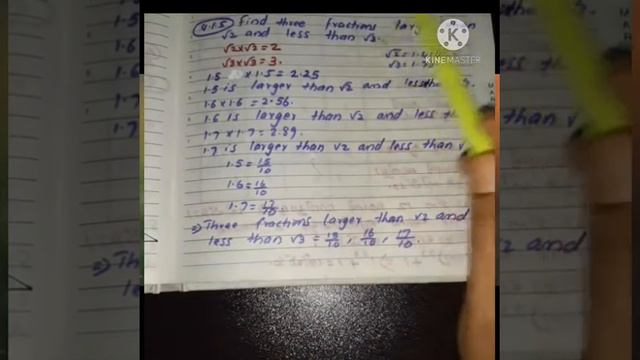 Q.1.5 Find three fractions
√2 and less than √3.
√2×√2 = 2
√3×√3 = 3.
√2 = 1.4
√3 = 1.7
1.5 × 1.5 = 2.25
1.5 is larger than √2 and less than
1.6 × 1.6 = 2.56.
1.6 is larger than √2 and less
1.7 × 1.7 = 2.89.
1.7 is larger than √2 and less than
1.5 = 15/10
1.6 = 16/10
1.7 = 17/10
⇒ Three fractions larger than √2 and
less than √3 = 15/10, 16/10, 17/10.
KINEMASTER